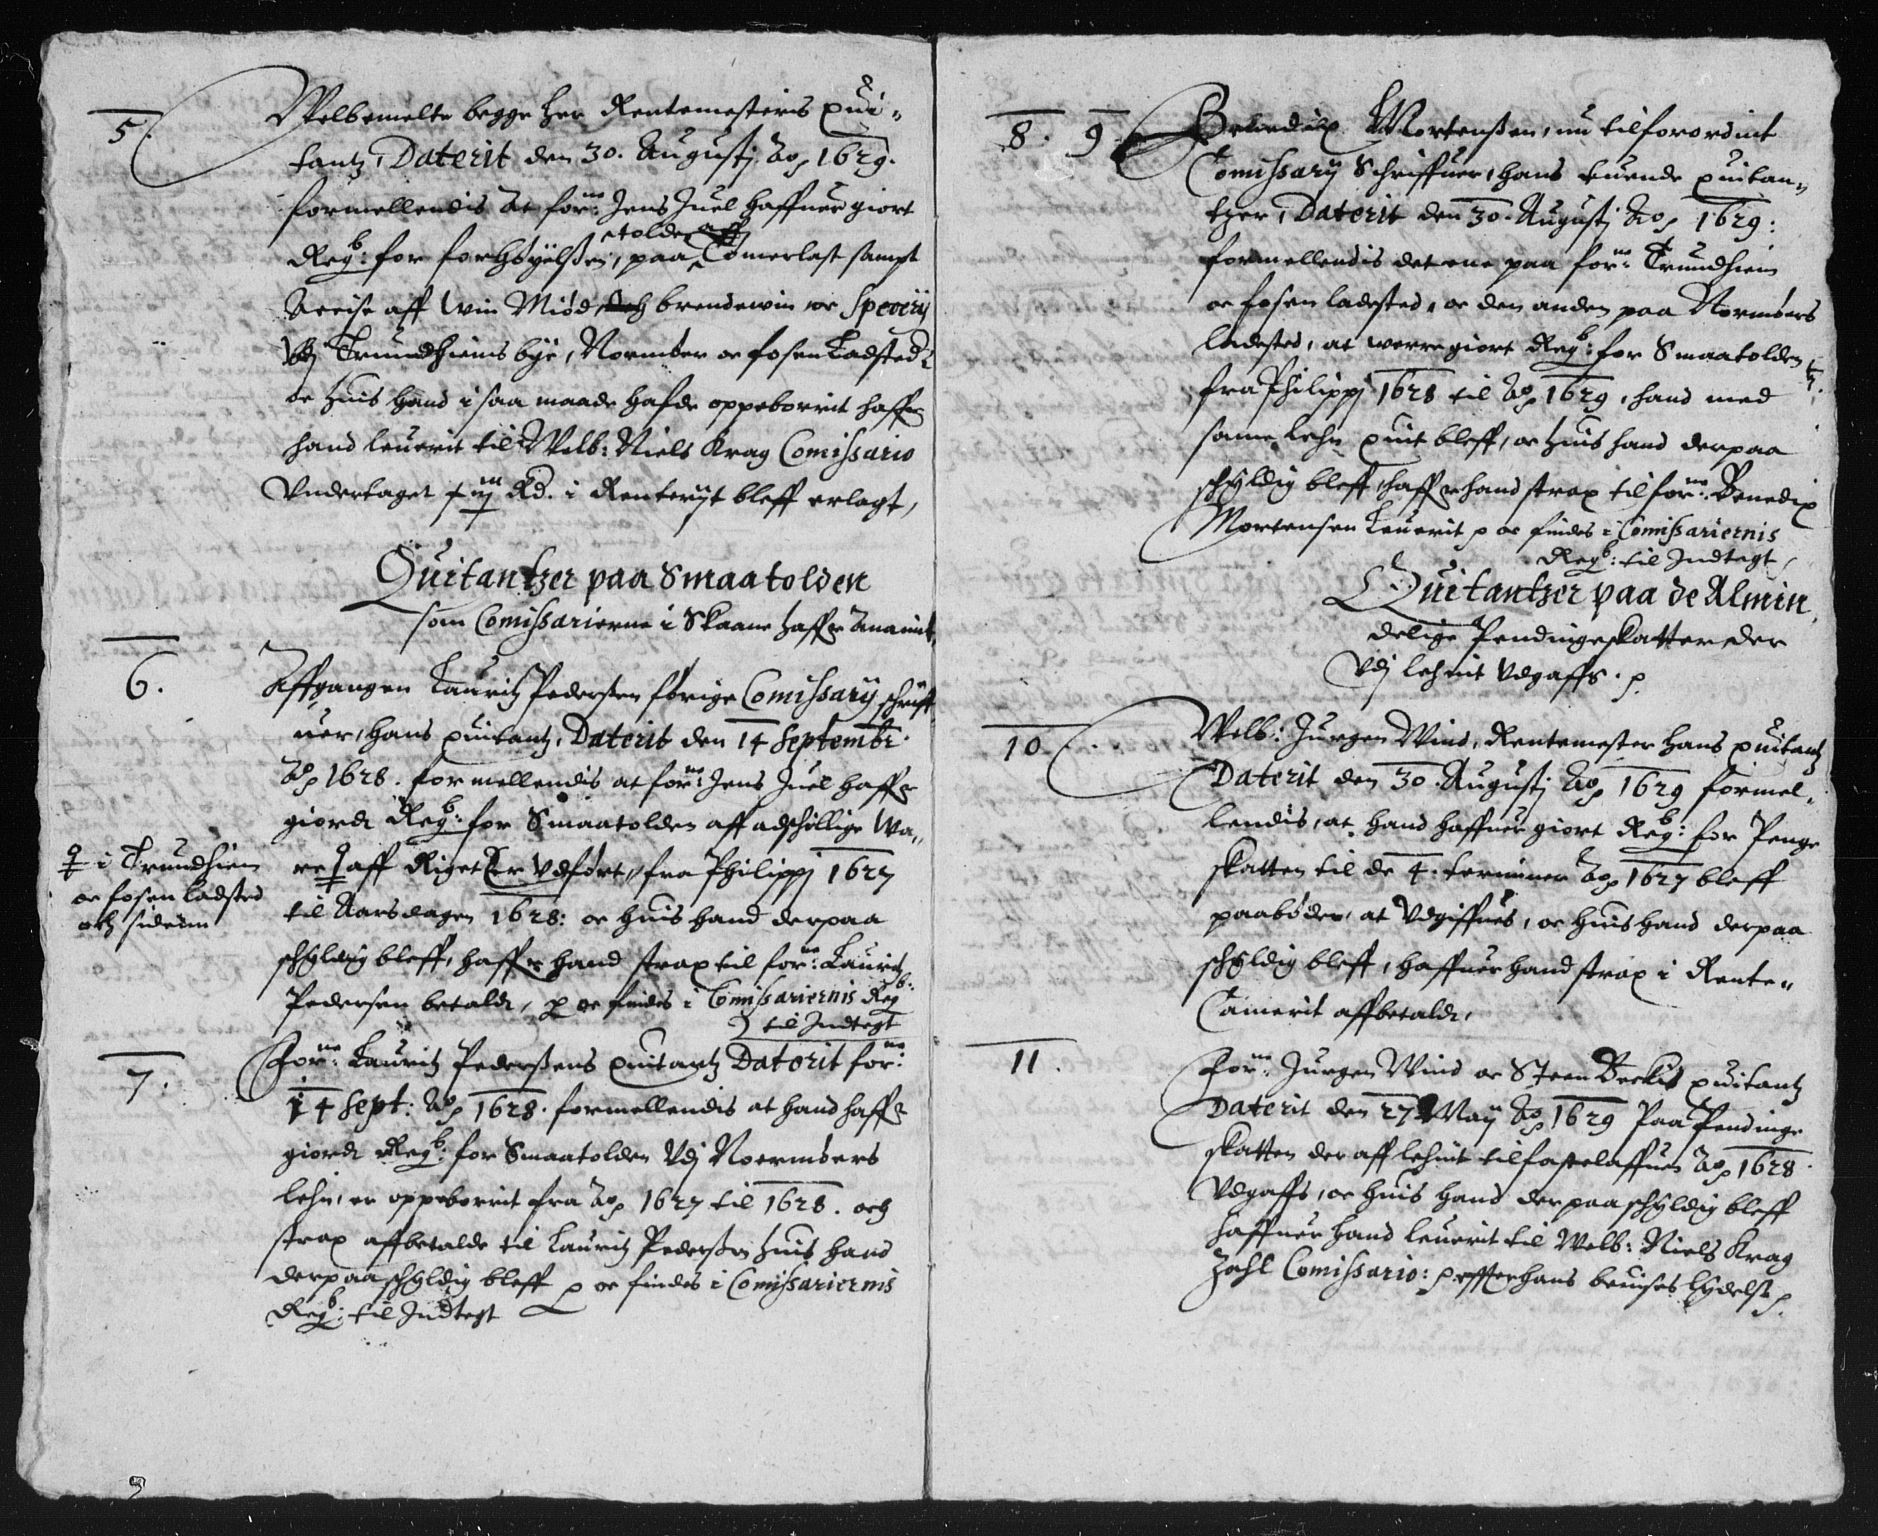 5.
Welbemelte begge her Rentemesters qui-
tantz, Daterit den 30. Augustj Ao 1629.
formellendis at forne: Jens Juel haffuer giort
Regb: for forhøyelsen, paa tolden aff Tømerlast sampt
Accise aff win Miød och brendewin oc Speceri
Vdj Trundhiems bye, Normøer oc fosen Ladsted
oc huis hand i saa maade hafde oppeborrit haffr
hand leuerit til Welb: Niels Krag Comissario
Vndertaget Rd. i Renterijt bleff erlagt,
Quitantzer paa Smaatolden
som Comissarierne i Skaane haffr Anammit
6.
Affgangen Lauritz Pedersen førige Comissarij schriff-
uer, hans quitantz, Daterit den 14 Septembr:
Ao 1628. formellendis at forne: Jens Juel haffr
giordt Regb: for Smaatolden aff adschillige Wa-
re aff Riget er Vdført, fra Philippj 1627
i Trundhiem
oc fosen ladsted
och sideren
til Aarsdagen 1628: oc huis hand derpaa
schyldig bleff, haffr hand strax til forne: Lauritz
Pedersen betaldt, oc findes i Comissariernis Regb:
til Indtegt
7.
Forne: Lauritz Pedersens quitantz Daterit forne:
14 Sept: Ao 1628. formellendis at hand haffr
giordt Regb: for Smaatolden Vdj Noermøers
lehn, er oppeborrit fra Ao 1627 til 1628. och
strax affbetalde til Lauritz Pedersen huis hand
derpaa schyldig bleff oc findes i Comissariernis
Regb: til Indtegt
8. 9.
Benedix Mortensen, nu tilforordint
Comissarij Schriffuer, hans tuende quitan-
tzer, Daterit den 30. Augustj Ao 1629:
formellendis det ene paa forne: Trundhiem
oc fosen ladested, oc den anden paa Normøers
ladested, at werre giort Regb: for Smaatolden
fra Philippj 1628 til Ao 1629, hand med
same lehn quit bleff, oc huis hand derpaa
schyldig bleff, haffr hand strax til forne: Benedix
Mortensen Leuerit oc findes i Comissariernis
Regb: til Indtegt,
Quitantzer paa de Almin-
delige Pendingeskatter der
Vdj lehnit Vdgaffs.
10.
Welb: Jurgen Wind, Rentemester hans quitantz
Daterit den 30. Augustj Ao 1629 formel-
lendis, at hand haffuer giort Regb: for Penge
skatten til de 4. terminer Ao 1627 bleff
paabøden, at Vdgiffues, oc huis hand derpaa
schyldig bleff, haffuer hand strax i Rente-
Camerit affbetaldt,
11.
Forne: Jurgen Wind oc Steen Beckis quitantz
Daterit den 27 Maij Ao 1629 Paa Pendinge
skatten der aff lehnit til fastelaffuen Ao 1628.
Vdgaffs, oc huis hand derpaa schyldig bleff
haffuer hand leuerit til Welb: Niels Krag
Zahl Comissario: effter hans beuises lydelse